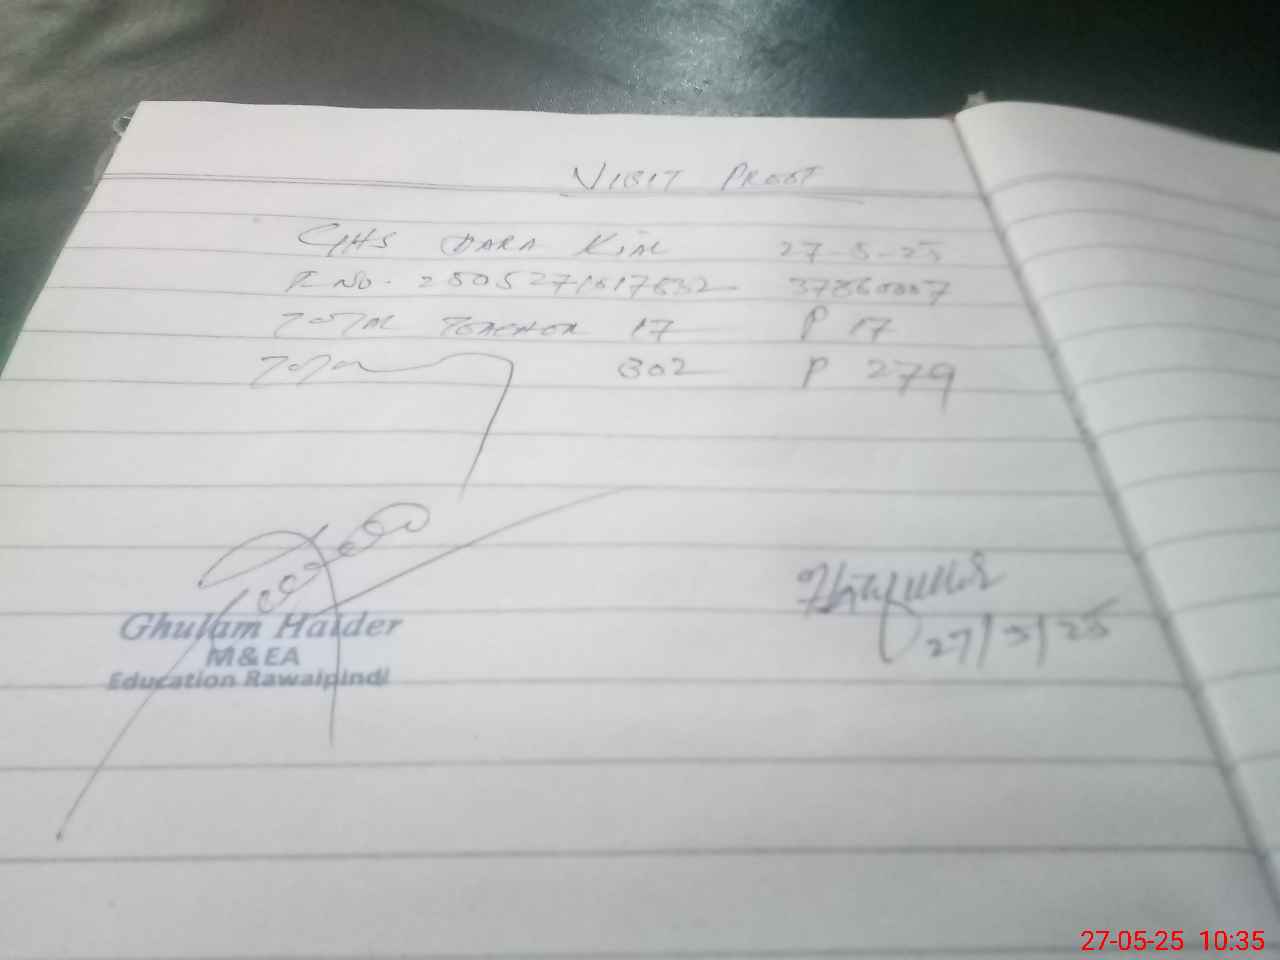 VISIT PROOF
GHS DARA Kial 27-5-25
F No. 2505271017532 37360007
Total Teacher 17 P 17
Total 302 P 279
Ghulam Haider
M&EA
Education Rawalpindi
27/5/25
27-05-25 10:35